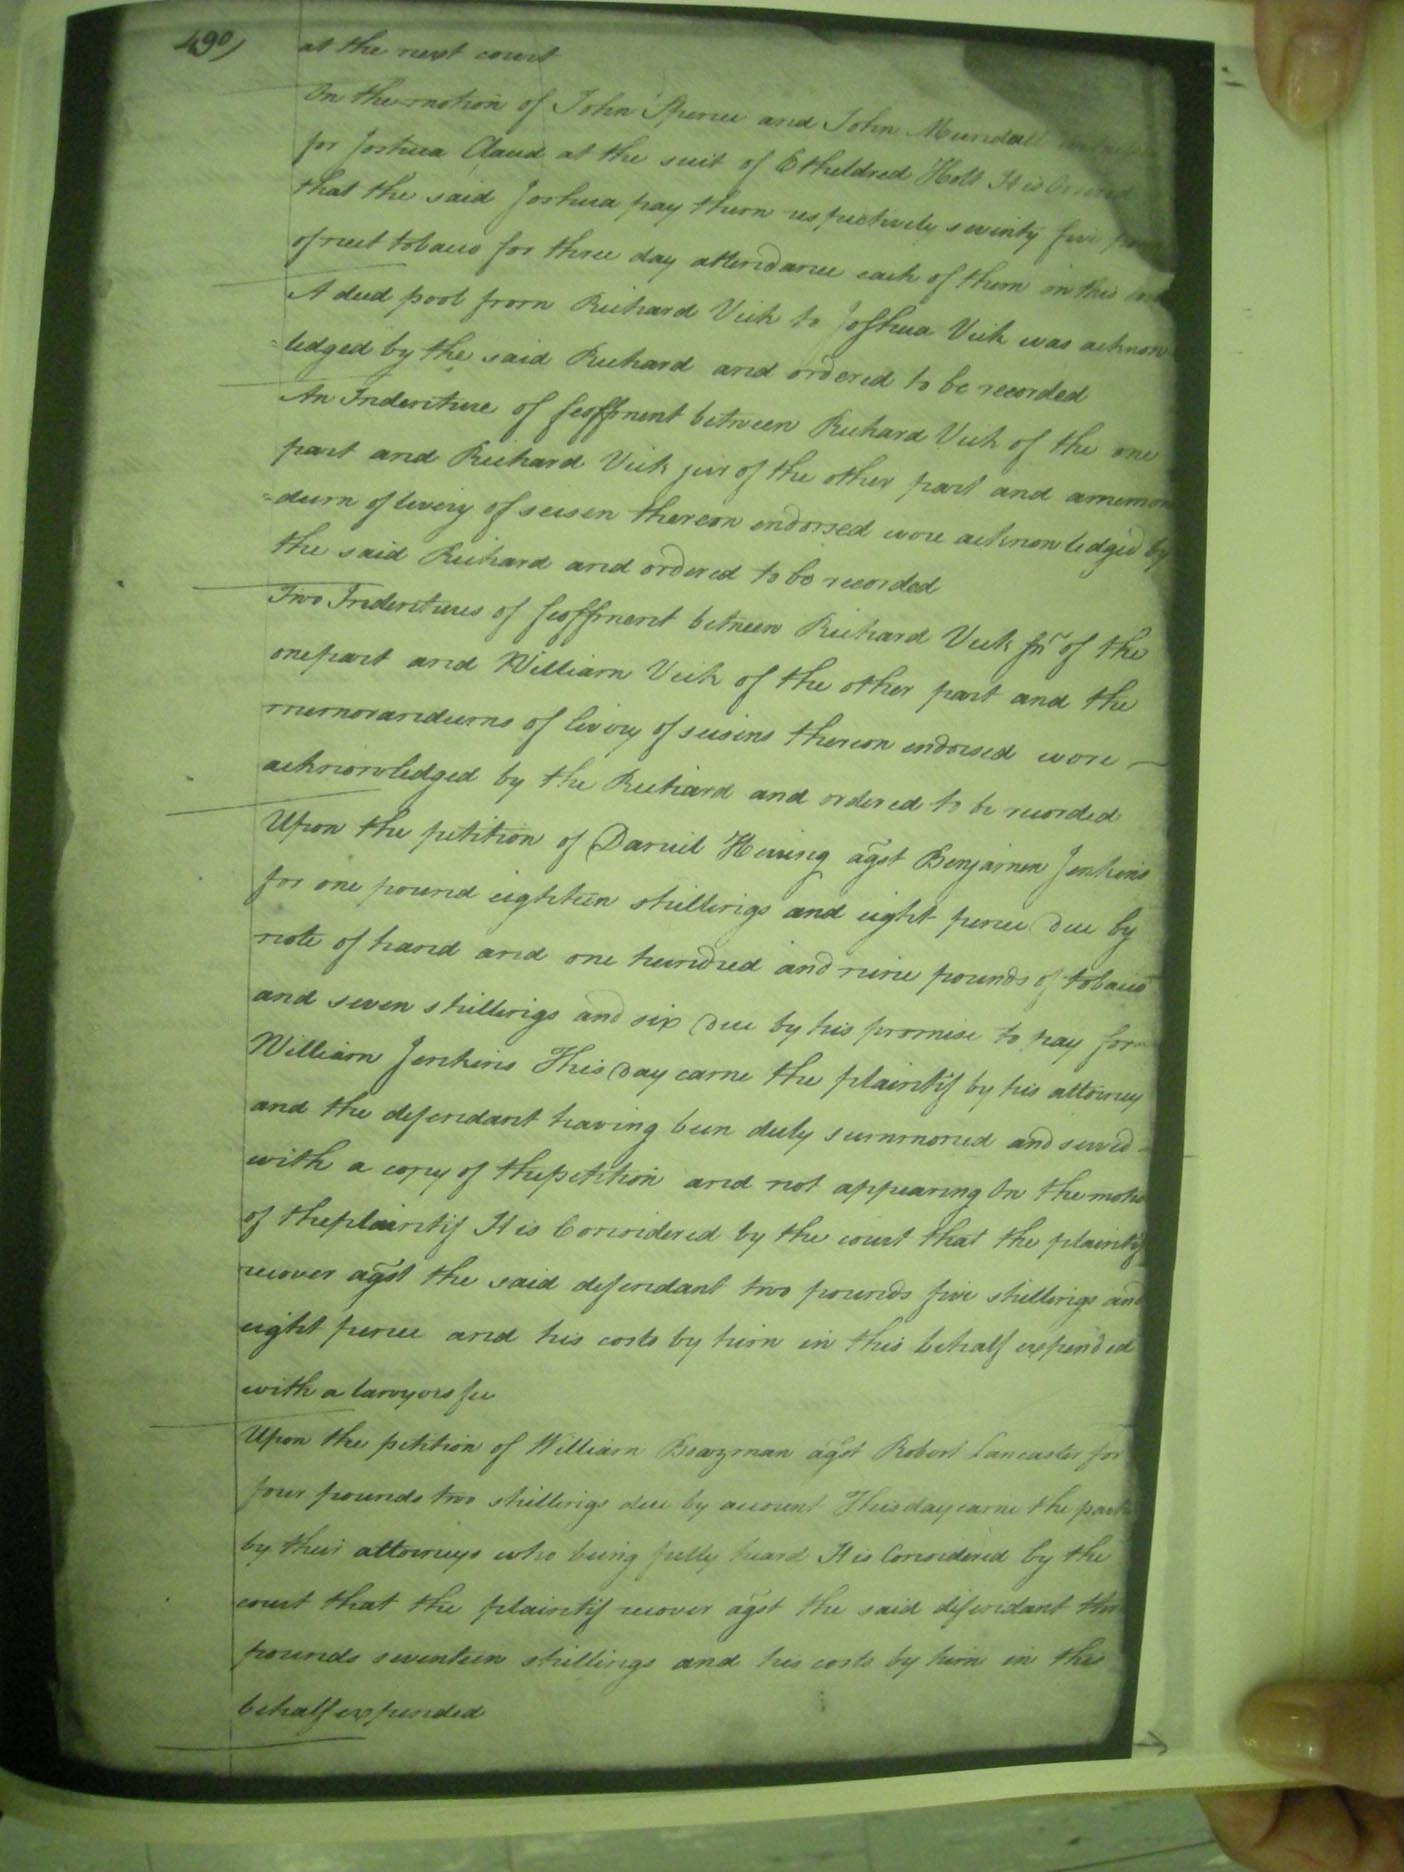 490)
at the next court
On the motion of John Spence and John Mundall
for Joshua Claud at the suit of Etheldred Holt It is Ordered
that the said Joshua pay them respectively seventy five
of neet tobacco for three day attendance each of them in this
A deed pool from Richard Vick to Joshua Vick was acknow
=ledged by the said Richard and ordered to be recorded
An Indenture of feoffment between Richard Vick of the one
part and Richard Vick jur of the other part and amemoran
=dum of livery of seisen thereon endorsed wore acknowledged by
the said Richard and ordered to be recorded
Two Indentures of feoffment between Richard Vick Jnr of the
onepart and William Vick of the other part and the
memorandums of livery of seisins thereon endorsed wore
acknowledged by the Richard and ordered to be recorded
Upon the petition of Daniel Herring agst Benjamen Jenkins
for one pound eighteen shillings and eight pence due by
note of hand and one hundred and nine pounds of tobacco
and seven shillings and six due by his promise to pay for
William Jenkins This day came the plaintif by his attorney
and the defendant having been duly summoned and served
with a copy of thepetition and not appearing On the motion
of theplaintif It is Considered by the court that the plaintif
recover agst the said defendant two pounds five shillings and
eight pence and his costs by him in this behalf expended
with a lawyers fee
Upon the petition of William Boazman agst Robert Lancaster for
four pounds two shillings due by account This day came the parties
by their attorneys who being fully heard It is Considered by the
court that the plaintif recover agst the said defendant three
pounds seventeen shillings and his costs by him in this
behalf expended